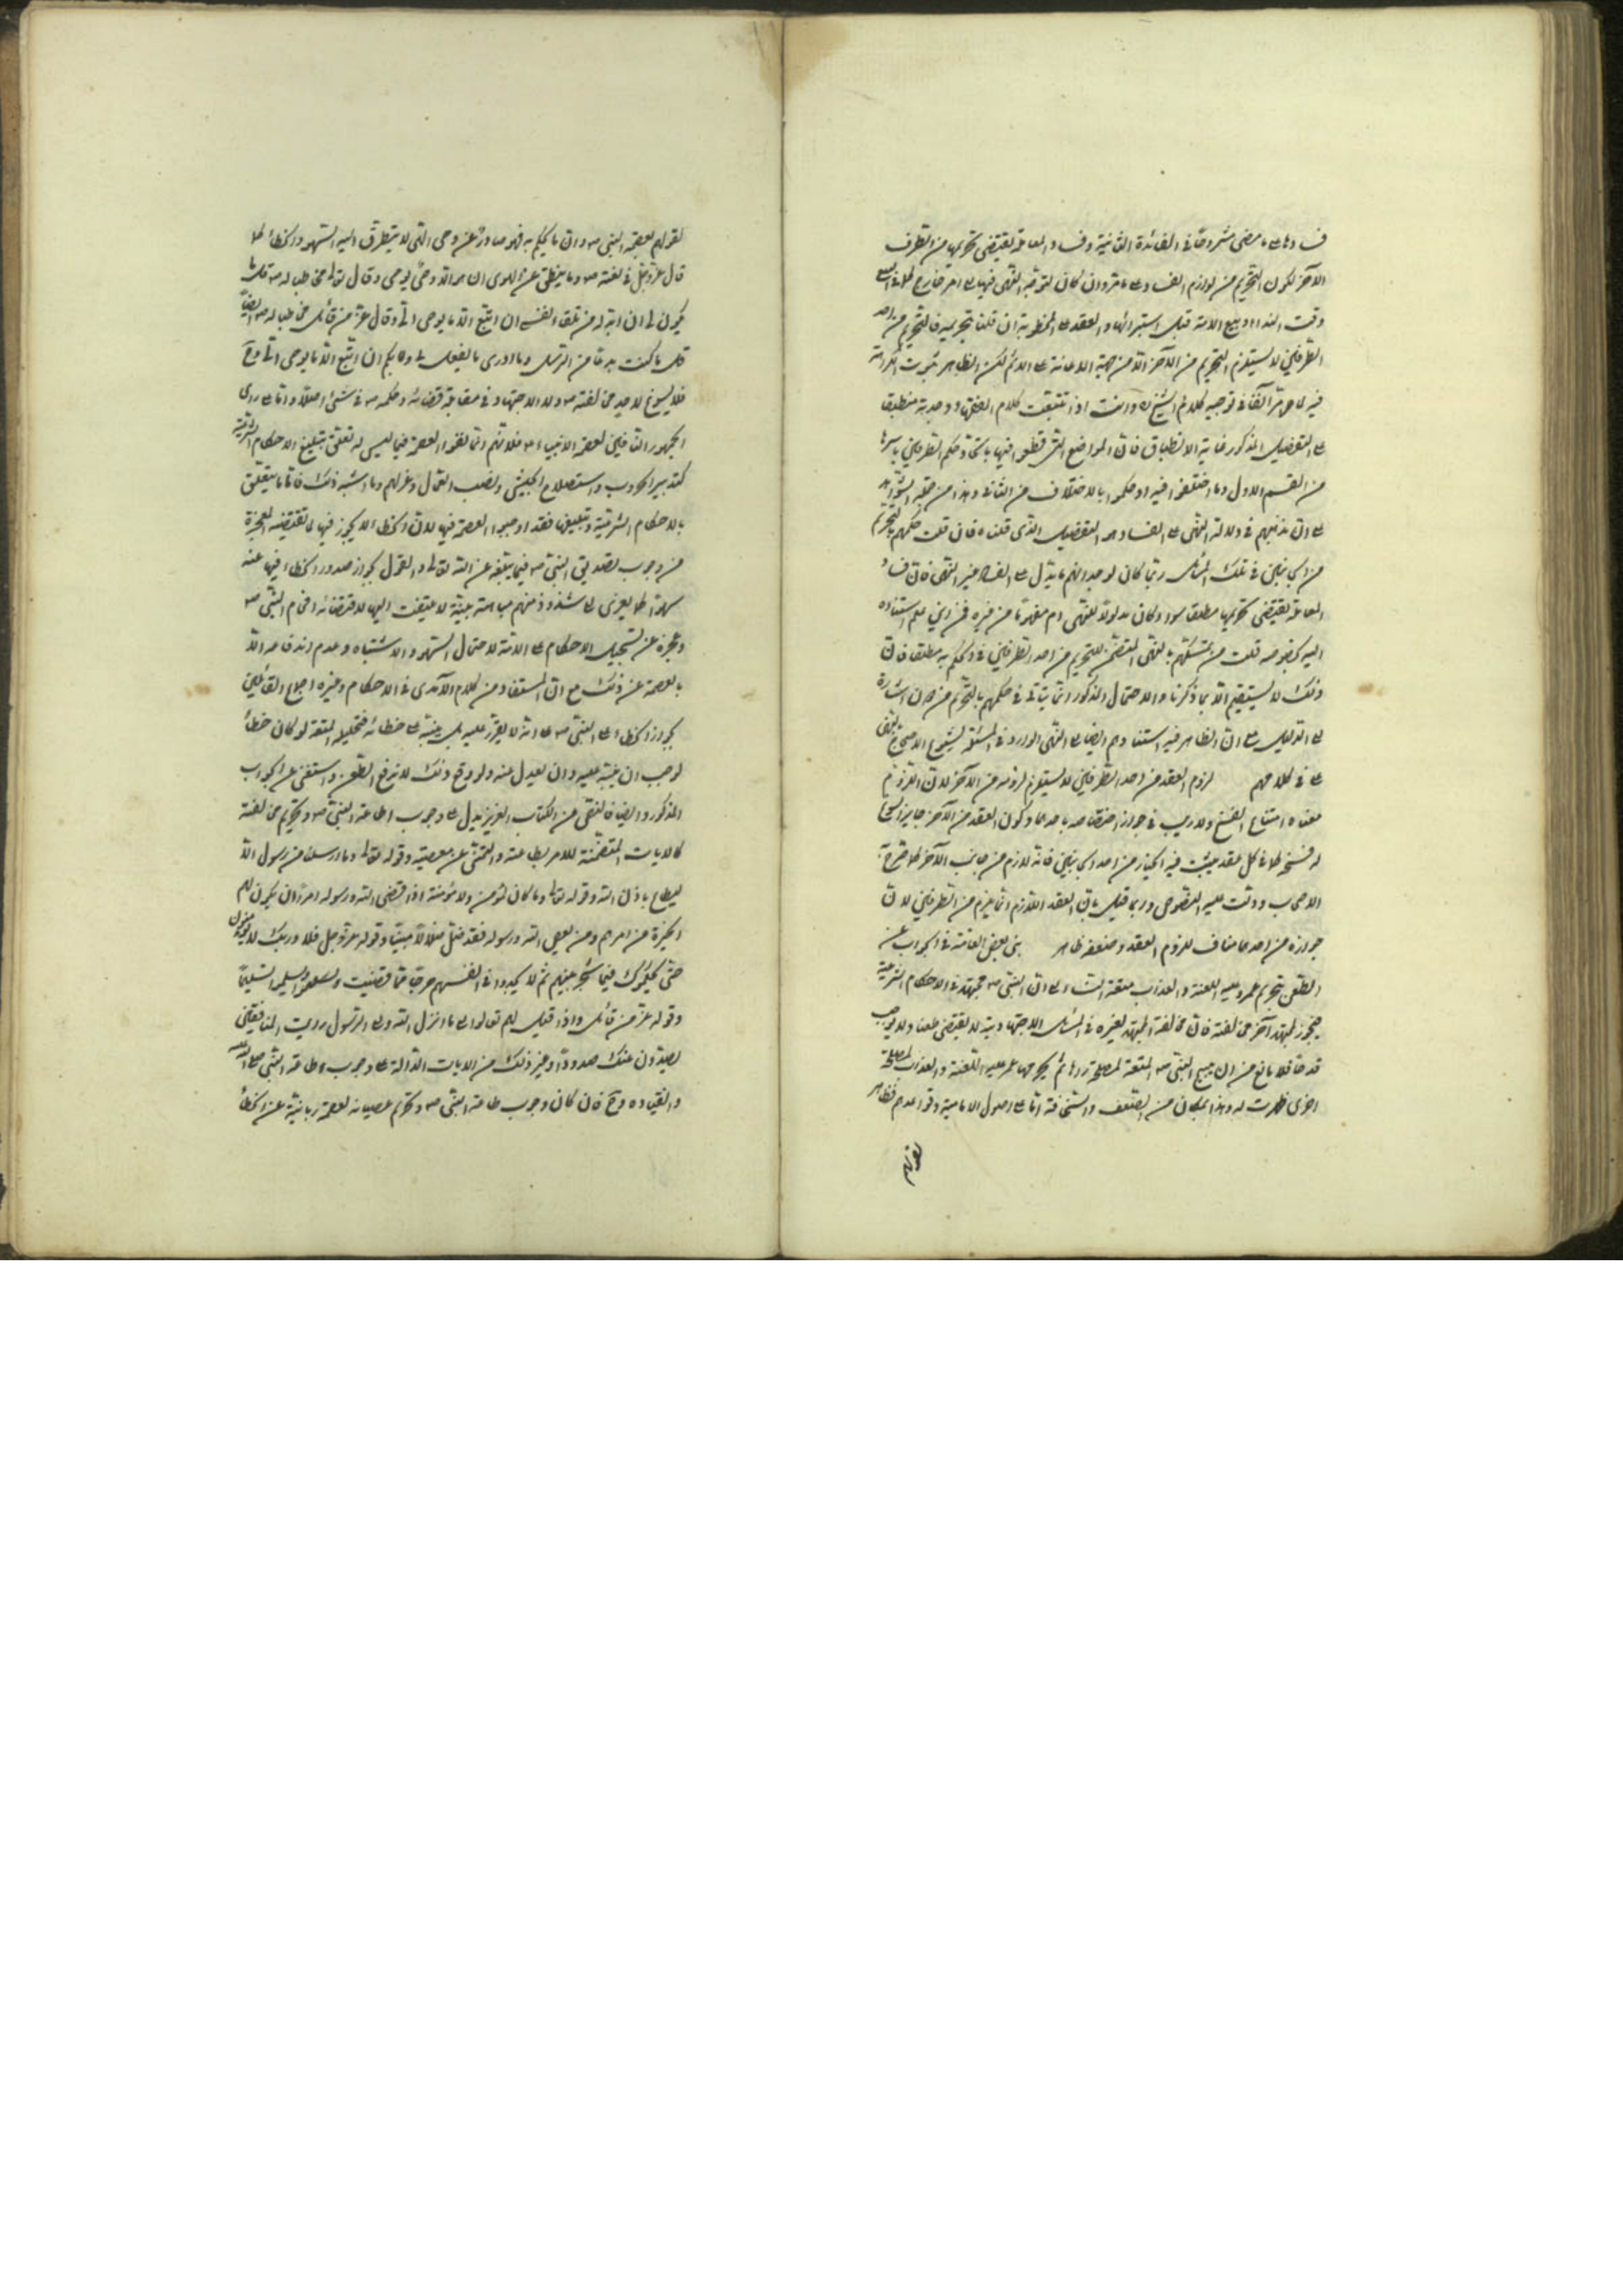 فسادها على ما مضى مشروحًا فى الفائدة الثانية وفساد المعاملة يقتضى تحريمها من الطرف
الآخر لكون التحريم من لوازم الفساد على ما مر وان كان لتوجه النهى فيها الى امر خارج كما فى البيع
وقت النداء او بيع الامة قبل استبرائها والعقد على المخطوبة ان قلنا بتحريمه فالتحريم من احد
الطرفين لا يستلزم التحريم من الآخر الا من جهة الاعانة على الاثم لكن الظاهر ثبوت الكراهة
فيه كما مر آنفا فى توجيه كلام الشيخ ره وانت اذا تتبعت كلام الفقهاء وجدته منطبقا
على التفصيل المذكور غاية الانطباق فان المواضع التى قطعوا فيها باتحاد حكم الطرفين باسرها
من القسم الاول وما اختلفوا فيه او حكموا بالاختلاف من الثانى وهذا من جملة الشواهد
على ان مذهبهم فى دلالة النهى على الفساد هو التفصيل الذى قلناه فان قلت حكمهم بالتحريم
من الجانبين فى تلك المسائل ربما كان لوجدانهم ما يدل على الفساد غير النهى فان فساد
المعاملة يقتضى تحريمها مطلقا سواء كان مدلولا للنهى ام مفهوما من غيره فمن اين علم استناده
اليه بخصوصه قلت من تمسكهم بالنهى المتضمن للتحريم من احد الطرفين فى الحكم به مطلقا فان
ذلك لا يستقيم الا بما ذكرنا والاحتمال المذكور انما يتأتى فى حكمهم بالتحريم من دون اشارة
الى الدليل مع ان الظاهر فيه استنادهم ايضا الى النهى الوارد فى المسئلة لشيوع الاحتجاج بالنهى
على فى كلامهم لزوم العقد من احد الطرفين لا يستلزم لزومه من الآخر لان اللزوم
معناه امتناع الفسخ ولا ريب فى جواز اختصاصه باحدهما وكون العقد من الآخر جايزا يصح
له فسخه كما فى كل عقد يثبت فيه الخيار من احد الجانبين فانه لازم من جانب الآخر كما صرح به
الاصحاب ودلت عليه النصوص وربما قيل بان العقد اللازم انما يلزم من الطرفين لان
جوازه من احدهما مناف للزوم العقد وضعفه ظاهر بنى بعض العامة فى الجواب عن
الطعن بتحريم عمر عليه اللعنة والعذاب متعة النساء على ان النبى ص مجتهد فى الاحكام الشرعية
فيجوز لمجتهد آخر مخالفته فان مخالفة المجتهد لغيره فى المسائل الاجتهادية لا يقتضى طعنا ولا يوجب
قدحا فلا مانع من ان يبيح النبى ص المتعة لمصلحة رآها ثم يحرمها عمر عليه اللعنة والعذاب لمصلحة
اخرى ظهرت له وهذا بمكان من الضعف والسخافة اما على اصول الامامية وقواعدهم فظاهر
لقولهم
لقولهم بعصمة النبى ص وان ما يحكم به فهو صادر عن وحى الهى لا يتطرق اليه السهو والخطأ كما
قال عز وجل فى نعته ص وما ينطق عن الهوى ان هو الا وحى يوحى وقال تعالى مخاطبا له ص قل ما
يكون لى ان ابدله من تلقاء نفسى ان اتبع الا ما يوحى الى وقال عز من قائل مخاطبا له ص ايضا
قل ما كنت بدعا من الرسل وما ادرى ما يفعل بى ولا بكم ان اتبع الا ما يوحى الى وح
فلا يسوغ لاحد مخالفته ص ولا الاجتهاد فى مقابلة قضائه وحكمه ص فى شئ اصلا واما على رأى
الجمهور النافين لعصمة الانبياء ع فلانهم انما نفوا العصمة فيما ليس له تعلق بتبليغ الاحكام الشرعية
كتدبير الحروب واستصلاح الجيش ونصب العمال وعزلهم وما اشبه ذلك فاما ما يتعلق
بالاحكام الشرعية وتبليغها فقد اوجبوا العصمة فيها لان الخطاء لا يجوز فيها لما تقتضيه المعجزة
من وجوب تصديق النبى ص فيما يبلغه عن الله تعالى والقول بجواز صدور الخطاء فيها عنه
سهوا كما يعزى الى شذوذ منهم مباهتة بينة لا يلتفت اليها لاقتضائه افحام النبى ص
وعجزه عن تسجيل الاحكام على الامة لاحتمال السهو والاشتباه وعدم اندفاعه الا
بالعصمة عن ذلك مع ان المستفاد من كلام الآمدى فى الاحكام وغيره اجماع القائلين
بجواز الخطاء على النبى ص على انه لا يقر عليه بل ينبه على خطائه فتحليله المتعة لو كان خطأ
لوجب ان ينبه عليه وان يعدل عنه ولو وقع ذلك لاندفع الطعن واستغنى عن الجواب
المذكور وايضا فالنص من الكتاب العزيز يدل على وجوب اطاعة النبى ص وتحريم مخالفته
كالآيات المتضمنة للامر بطاعته والنهى عن معصيته وقوله تعالى وما ارسلنا من رسول الا
ليطاع باذن الله وقوله تعالى وما كان لمؤمن ولا مؤمنة اذا قضى الله ورسوله امرا ان يكون لهم
الخيرة من امرهم ومن يعص الله ورسوله فقد ضل ضلالا مبينا وقوله عز وجل فلا وربك لا يؤمنون
حتى يحكموك فيما شجر بينهم ثم لا يجدوا فى انفسهم حرجا مما قضيت ويسلموا تسليما
وقوله عز من قائل واذا قيل لهم تعالوا الى ما انزل الله والى الرسول رايت المنافقين
يصدون عنك صدودا وغير ذلك من الآيات الدالة على وجوب اطاعة النبى صلى الله عليه
وانقياده وح فان كان وجوب طاعة النبى ص وتحريم عصيانه لعصمة ربانية عن الخطأ